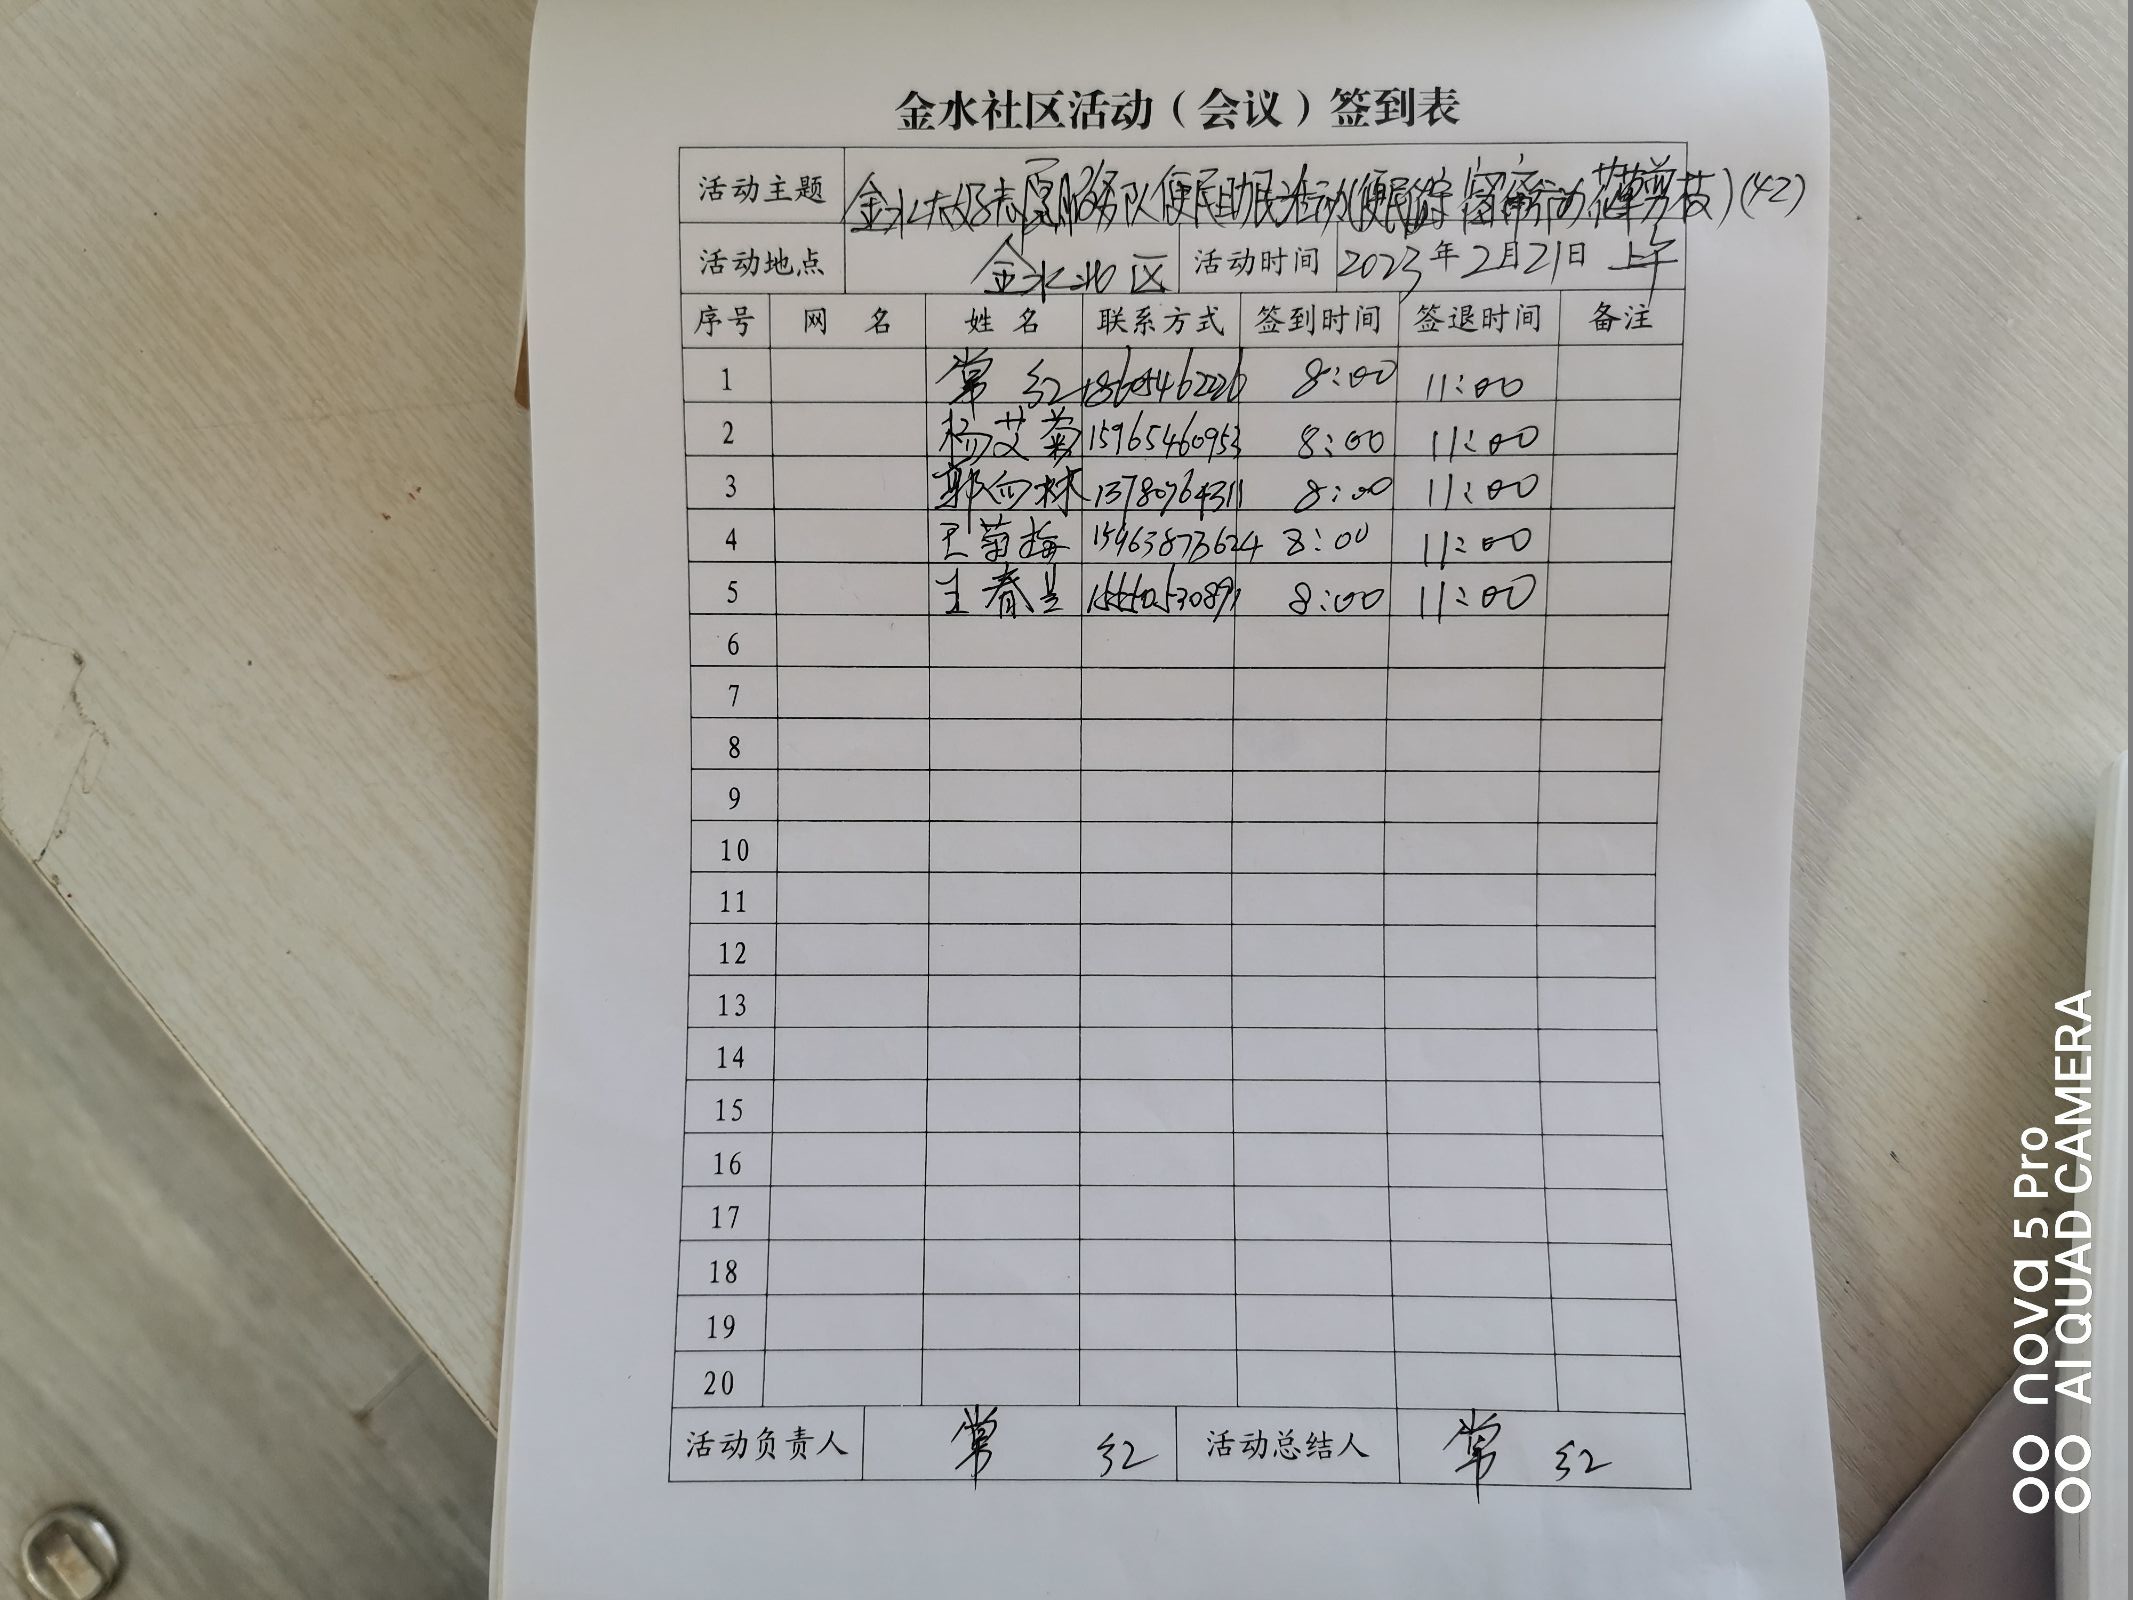 金水社区活动（会议）签到表
活动主题 金水大好志愿服务队便民助民活动(便民 花草剪枝)(42)
活动地点 金水北区 活动时间 2023年2月21日 上午
序号 网 名 姓 名 联系方式 签到时间 签退时间 备注
1 常 红 8:00 11:00
2 杨艾菊 15965460953 8:00 11:00
3 郭向林 13780764311 8:00 11:00
4 王菊梅 15963873624 8:00 11:00
5 王春兰 8:00 11:00
6
7
8
9
10
11
12
13
14
15
16
17
18
19
20
活动负责人 常 红 活动总结人 常 红
nova 5 Pro
AI QUAD CAMERA